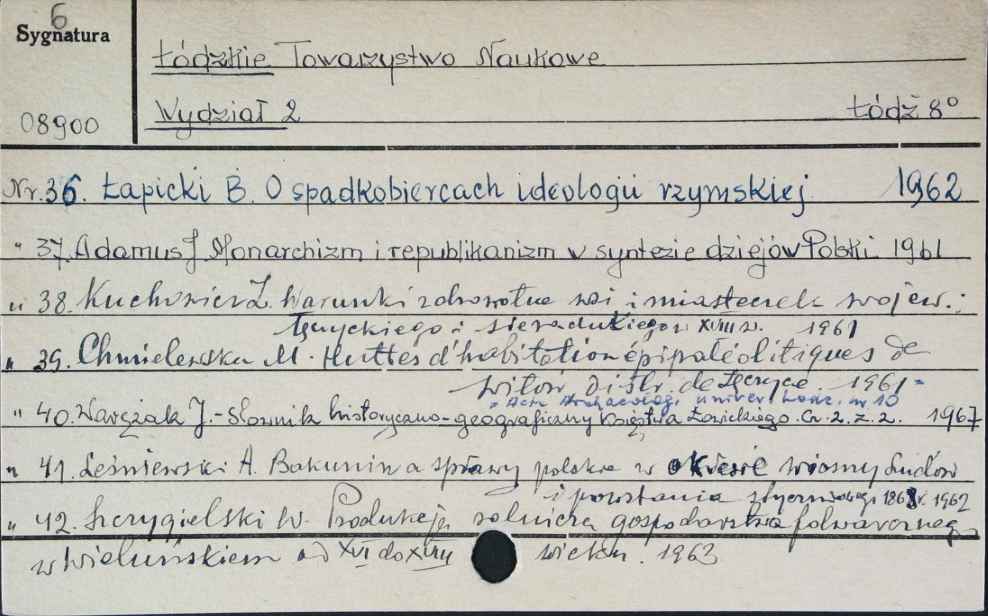 6
Sygnatura
Łódzkie Towarzystwo Naukowe
Wydział 2 Łódź 8°
08900
Nr. 36. Łapicki B. O spadkobiercach ideologii rzymskiej. 1962
" 37. Adamus J Monarchizm i republikanizm w syntezie dziejów Polski 1961
" 38. Kuchowicz Z Warunki zdrowotne wsi i miasteczek wojew.:
łęczyckiego i sieradzkiego w XVIII w. 1961
" 39. Chmielewska M. Huttes d'habitation épipaléolitiques de
Witów, distr. de Łęczyca. 1961
" Acta Archaeologi. Univer. Lodz. nr 10
" 40. Warężak J. - Słownik historyczno-geograficzny Księstwa Łowickiego. Cz. 2. z. 2. 1967
" 41. Leśniewski A. Bakunin a sprawy polskie w okresie wiosny Ludów
i powstania styczniowego 1863 r. 1962
" 42. Szczygielski W. Produkcja rolnicza gospodarstwa folwarcznego
w Wieluńskiem od XVI do XVIII wieku. 1963